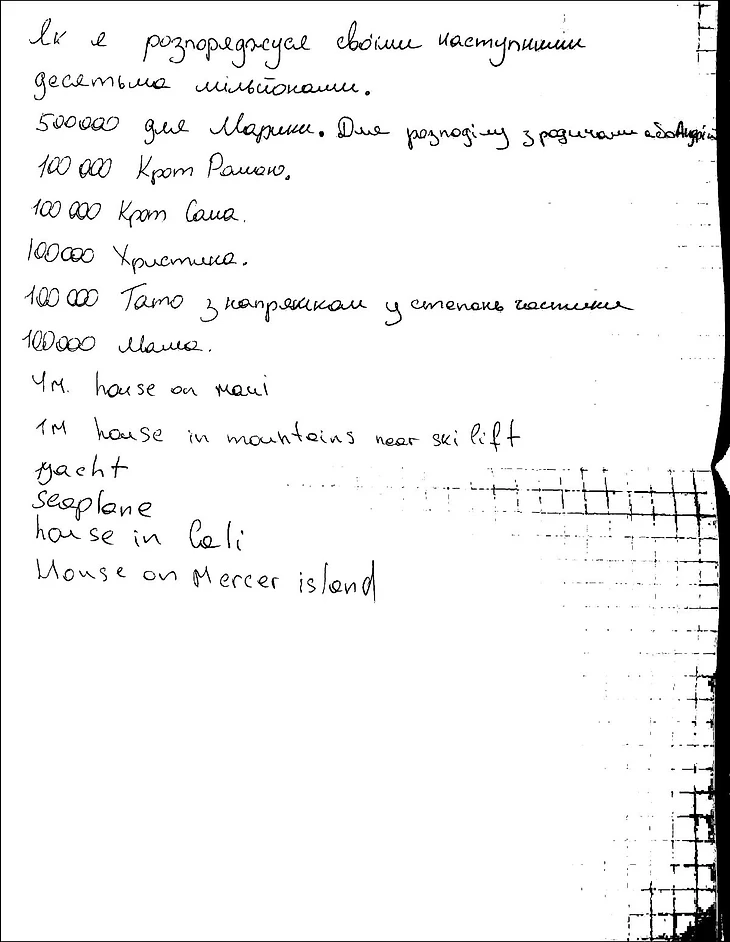 Як я розпоряджуся своїми наступними
десятьма мільйонами.
500000 для Марини. Для розподілу з родичами або Андрій
100 000 Крот Рамаю.
100 000 Крот Саша.
100000 Христина.
100 000 Тато з напрямком у степань частини
100000 Мама.
4м. house on маui
1М house in mountains near ski lift
yacht
seaplane
house in Cali
House on Mercer island